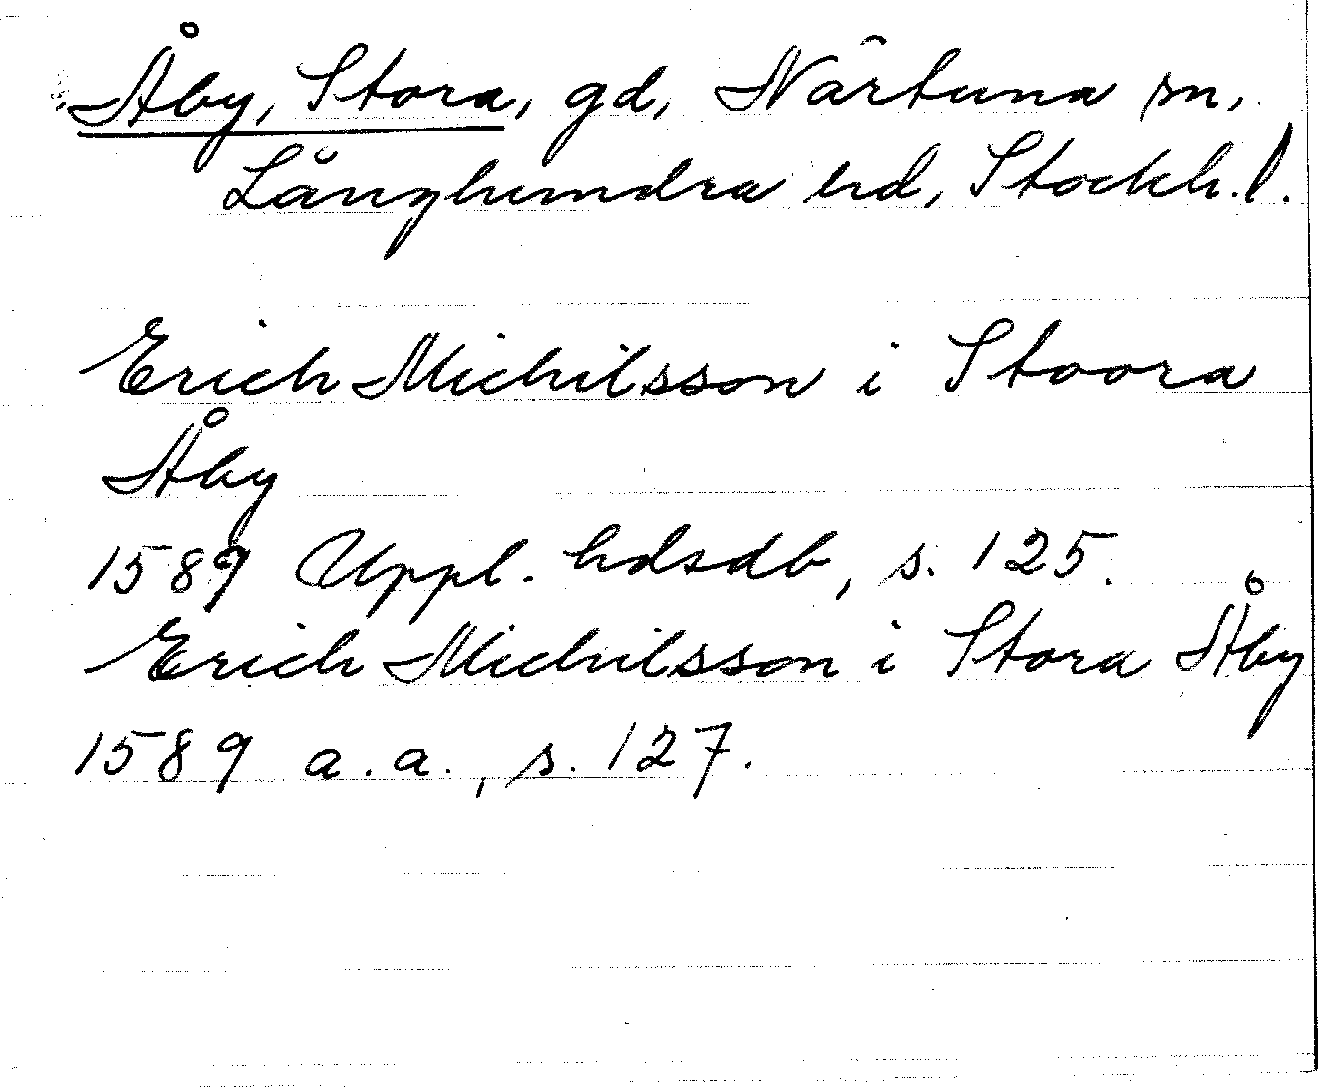 Åby, Stora, gd, Närtuna sn,
Långhundra hd, Stockh. l.
Erich Michilsson i Stoora
Åby
1589 Uppl. hdsdb, s. 125.
Erich Michilsson i Stora Åby
1589 a.a., s. 127.